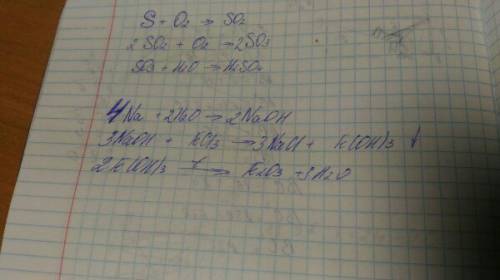 S + O2 → SO2
2SO2 + O2 → 2SO3
SO3 + H2O → H2SO4
4Na + 2H2O → 2NaOH
3NaOH + FeCl3 → 3NaCl + Fe(OH)3 ↓
2Fe(OH)3 t→ Fe2O3 + 3H2O